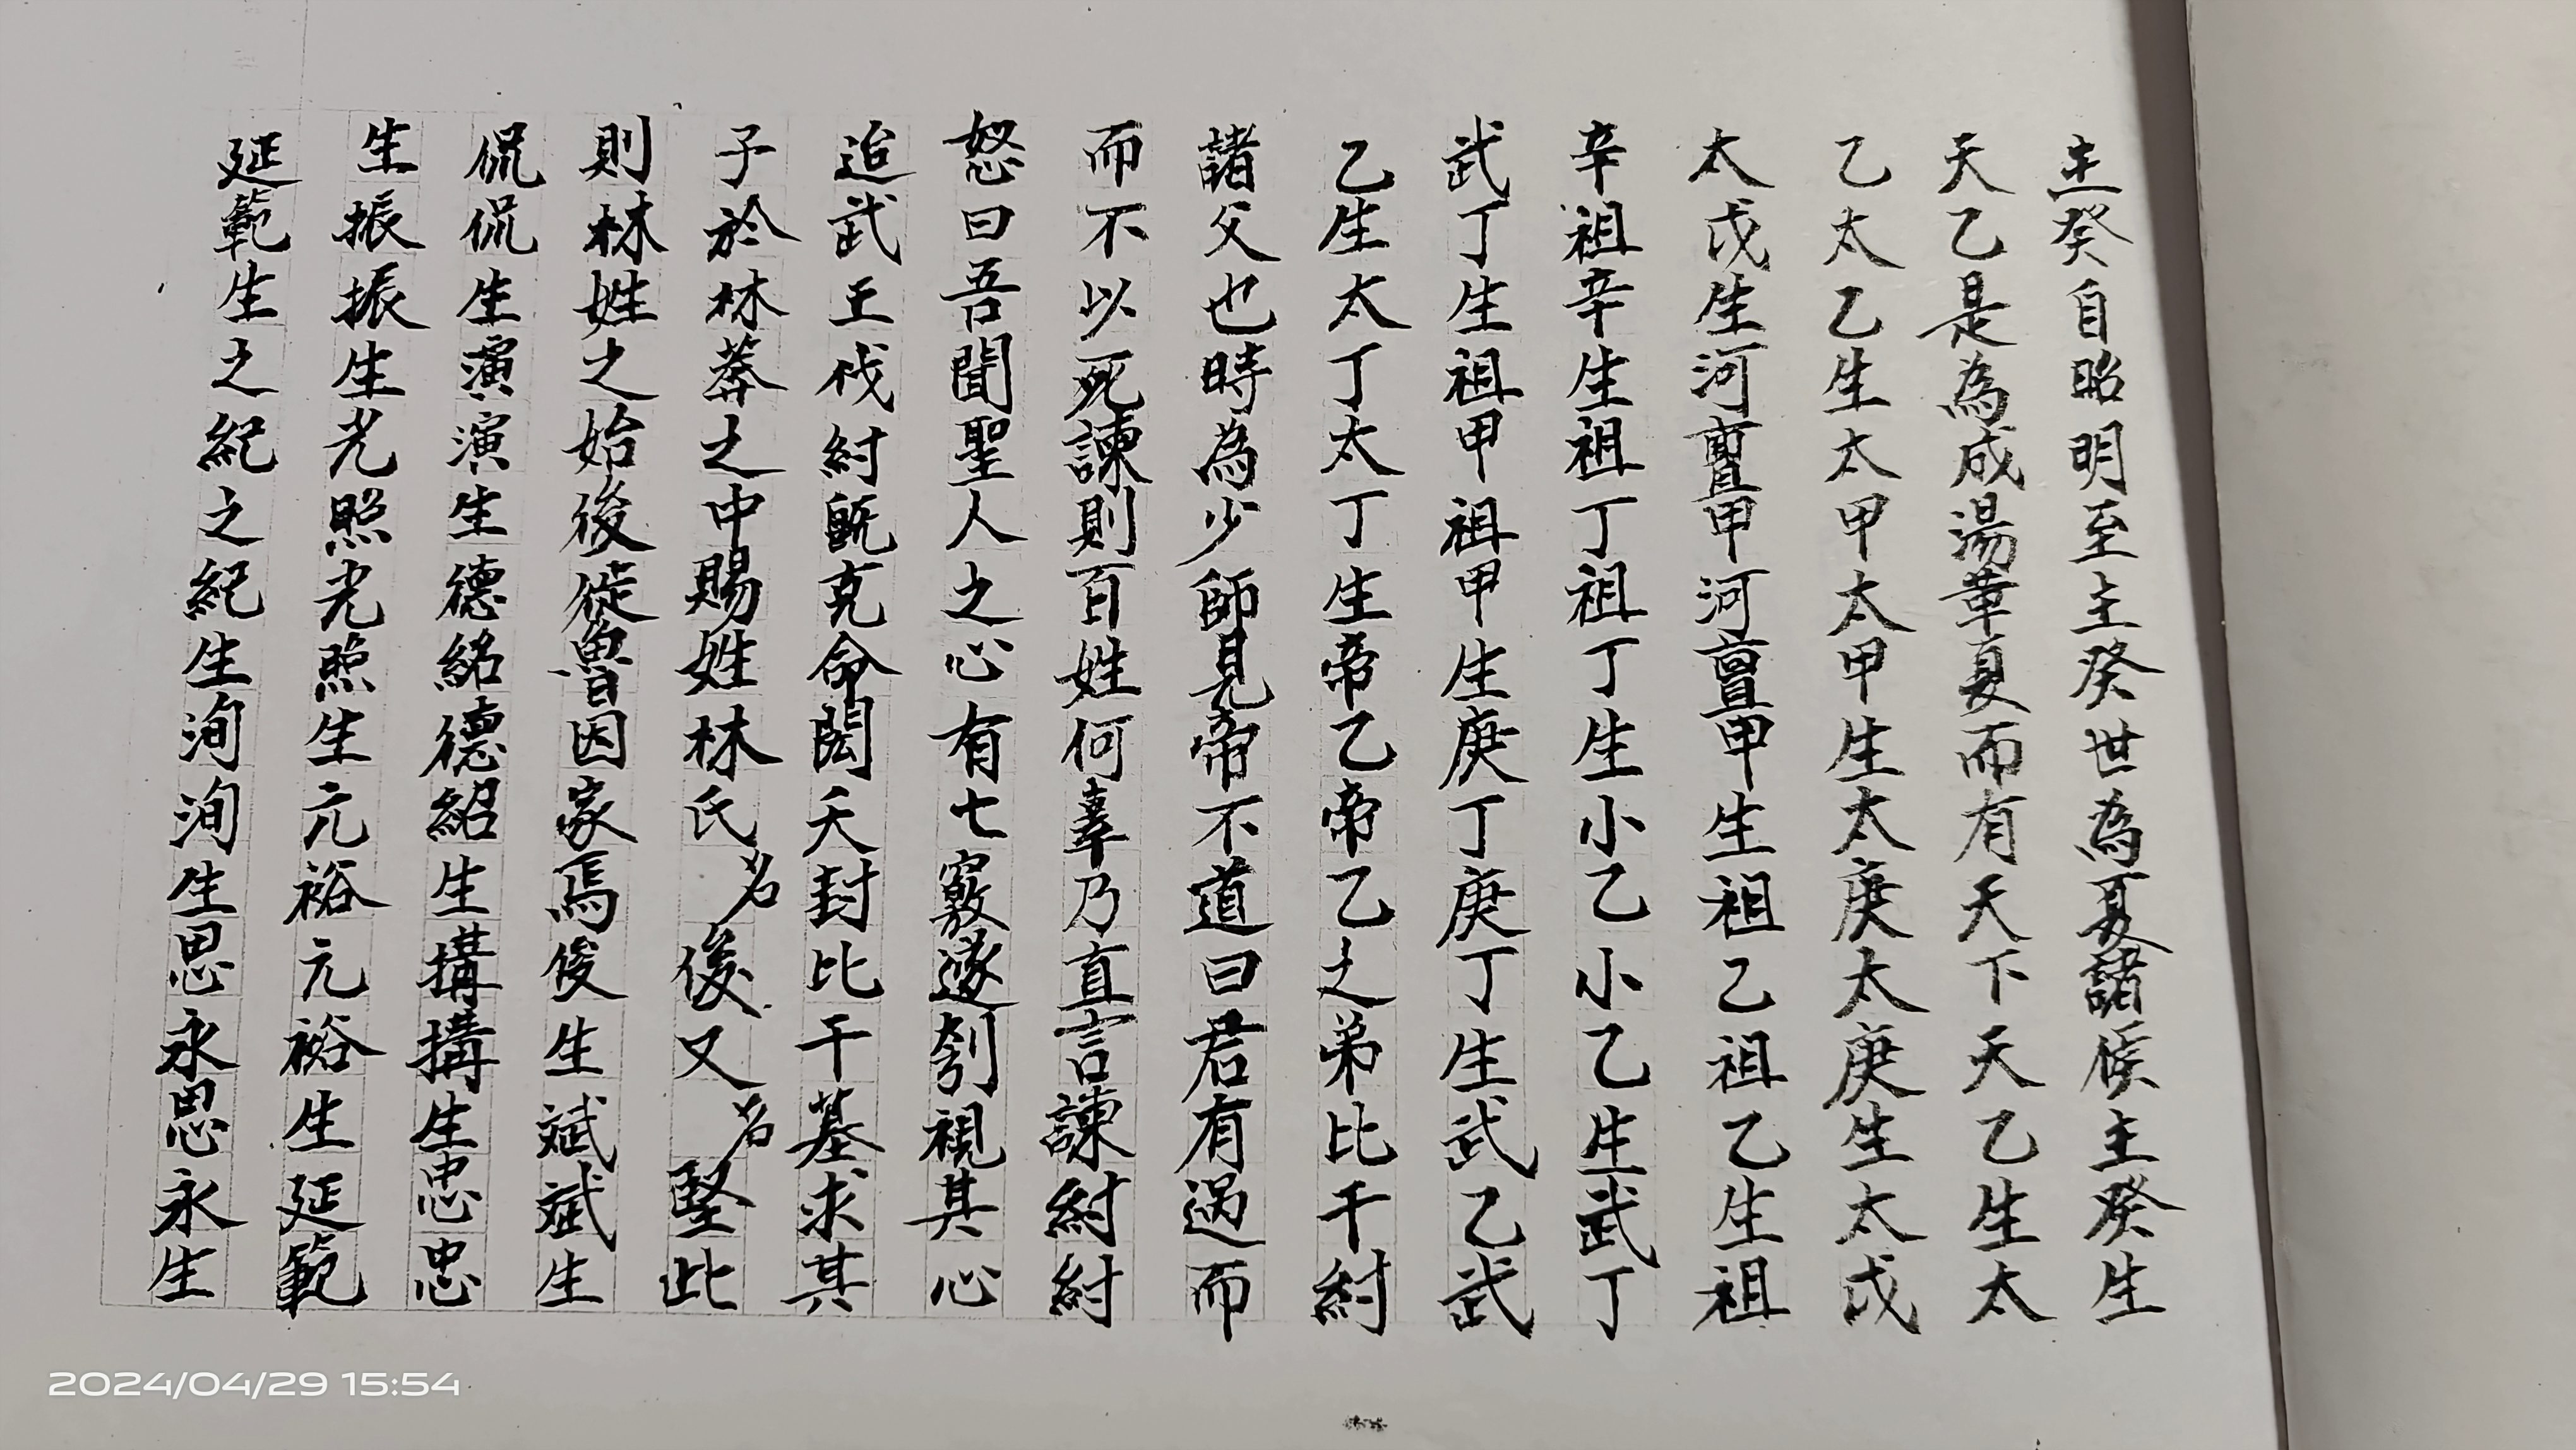 主癸自昭明至主癸世為夏諸侯主癸生
天乙是為成湯華夏而有天下天乙生太
乙太乙生太甲太甲生太庚太庚生太戊
太戊生河亶甲河亶甲生祖乙祖乙生祖
辛祖辛生祖丁祖丁生小乙小乙生武丁
武丁生祖甲祖甲生庚丁庚丁生武乙武
乙生太丁太丁生帝乙帝乙之弟比干紂
諸父也時為少師見帝不道曰君有過而
而不以死諫則百姓何辜乃直言諫紂紂
怒曰吾聞聖人之心有七竅遂刳視其心
迨武王伐紂既克命閎夭封比干墓求其
子於林莽之中賜姓林氏名後又名堅此
則林姓之始後徙魯因家焉後生斌斌生
侃侃生演演生德紹德紹生搆搆生忠忠
生振振生光照光照生元裕元裕生延範
延範生之紀之紀生洵洵生思永思永生
2024/04/29 15:54